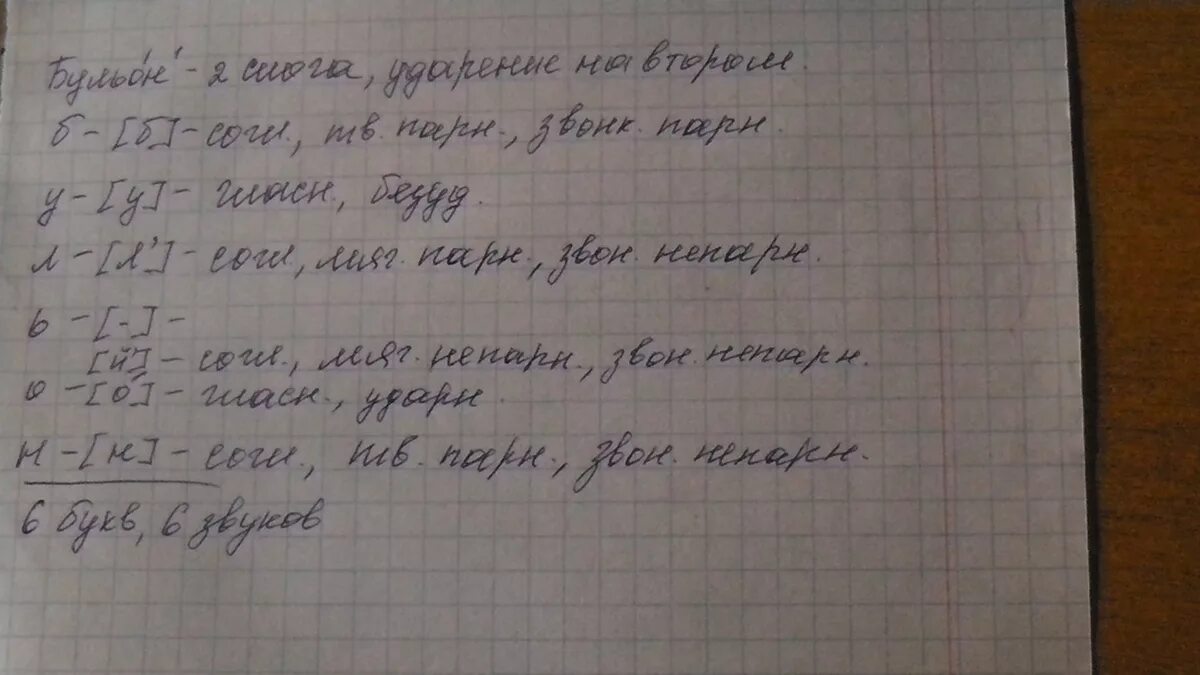 Бульо́н - 2 слога, ударение на втором.
б - [б] - согл., тв. парн., звонк. парн.
у - [у] - гласн., безуд.
л - [л'] - согл., мяг. парн., звон. непарн.
ь - [-] -
[й'] - согл., мяг. непарн., звон. непарн.
о - [о́] - гласн., ударн.
н - [н] - согл., тв. парн., звон. непарн.
6 букв, 6 звуков